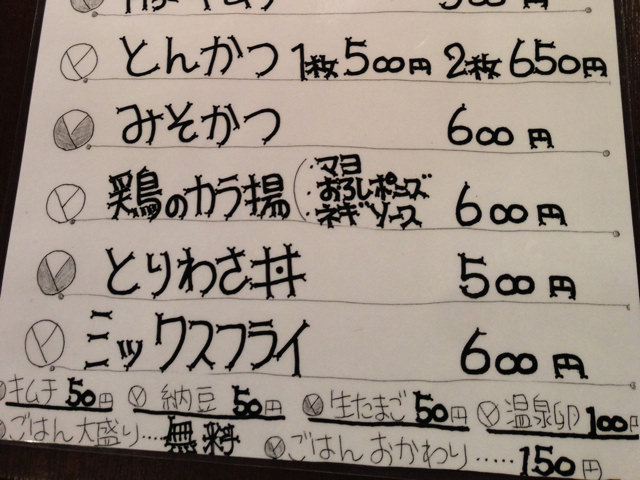 とんかつ 1枚500円 2枚650円
みそかつ 600円
鶏のカラ揚 ・マヨ ・おろしポンズ ・ネギソース 600円
とりわさ丼 500円
ミックスフライ 600円
キムチ 50円 納豆 50円 生たまご 50円 温泉卵 100円
ごはん大盛り…無料 ごはん おかわり……150円